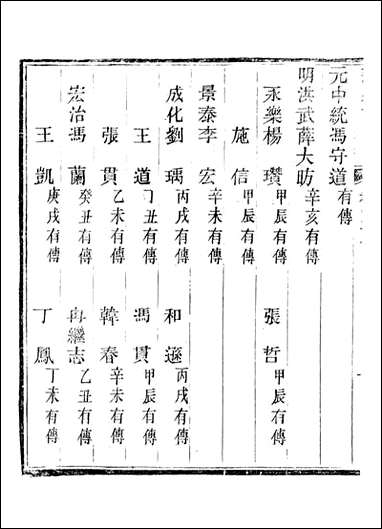 元中統馮守道有傳
明洪武薛大昉辛亥有傳
永樂楊瓚甲辰有傳　張哲甲辰有傳
施信甲辰有傳
景泰李宏辛未有傳
成化劉瑀丙戌有傳　和遜丙戌有傳
王道丑有傳　馮貫甲辰有傳
張貫乙未有傳　韓春辛未有傳
宏治馮蘭癸丑有傳　冉繼志乙丑有傳
王凱庚戌有傳　丁鳳丁未有傳